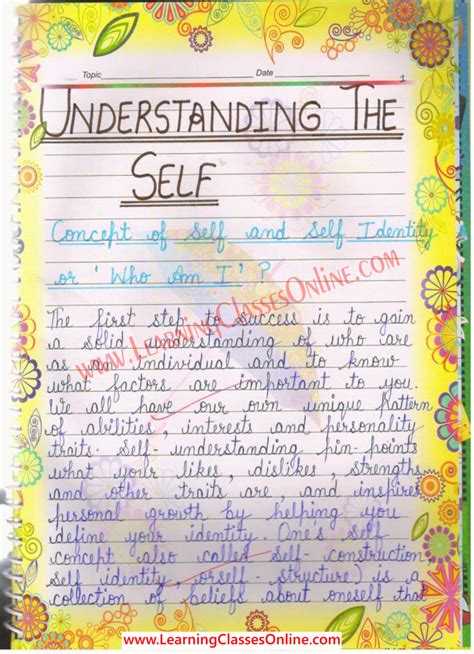 Topic Date 1
UNDERSTANDING THE
SELF
Concept of Self and Self Identity
or 'Who Am I' ?
www.LearningClassesOnline.com
The first step to success is to gain
a solid understanding of who are
as an individual and to know
what factors are important to you.
We all have our own unique pattern
of abilities, interests and personality
traits. Self-understanding pin-points
what your likes, dislikes, strengths
and other traits are, and inspires
personal growth by helping you
define your identity. One's self
concept also called self-construction
self identity, orself-structure) is a
collection of beliefs about oneself that
www.LearningClassesOnline.com